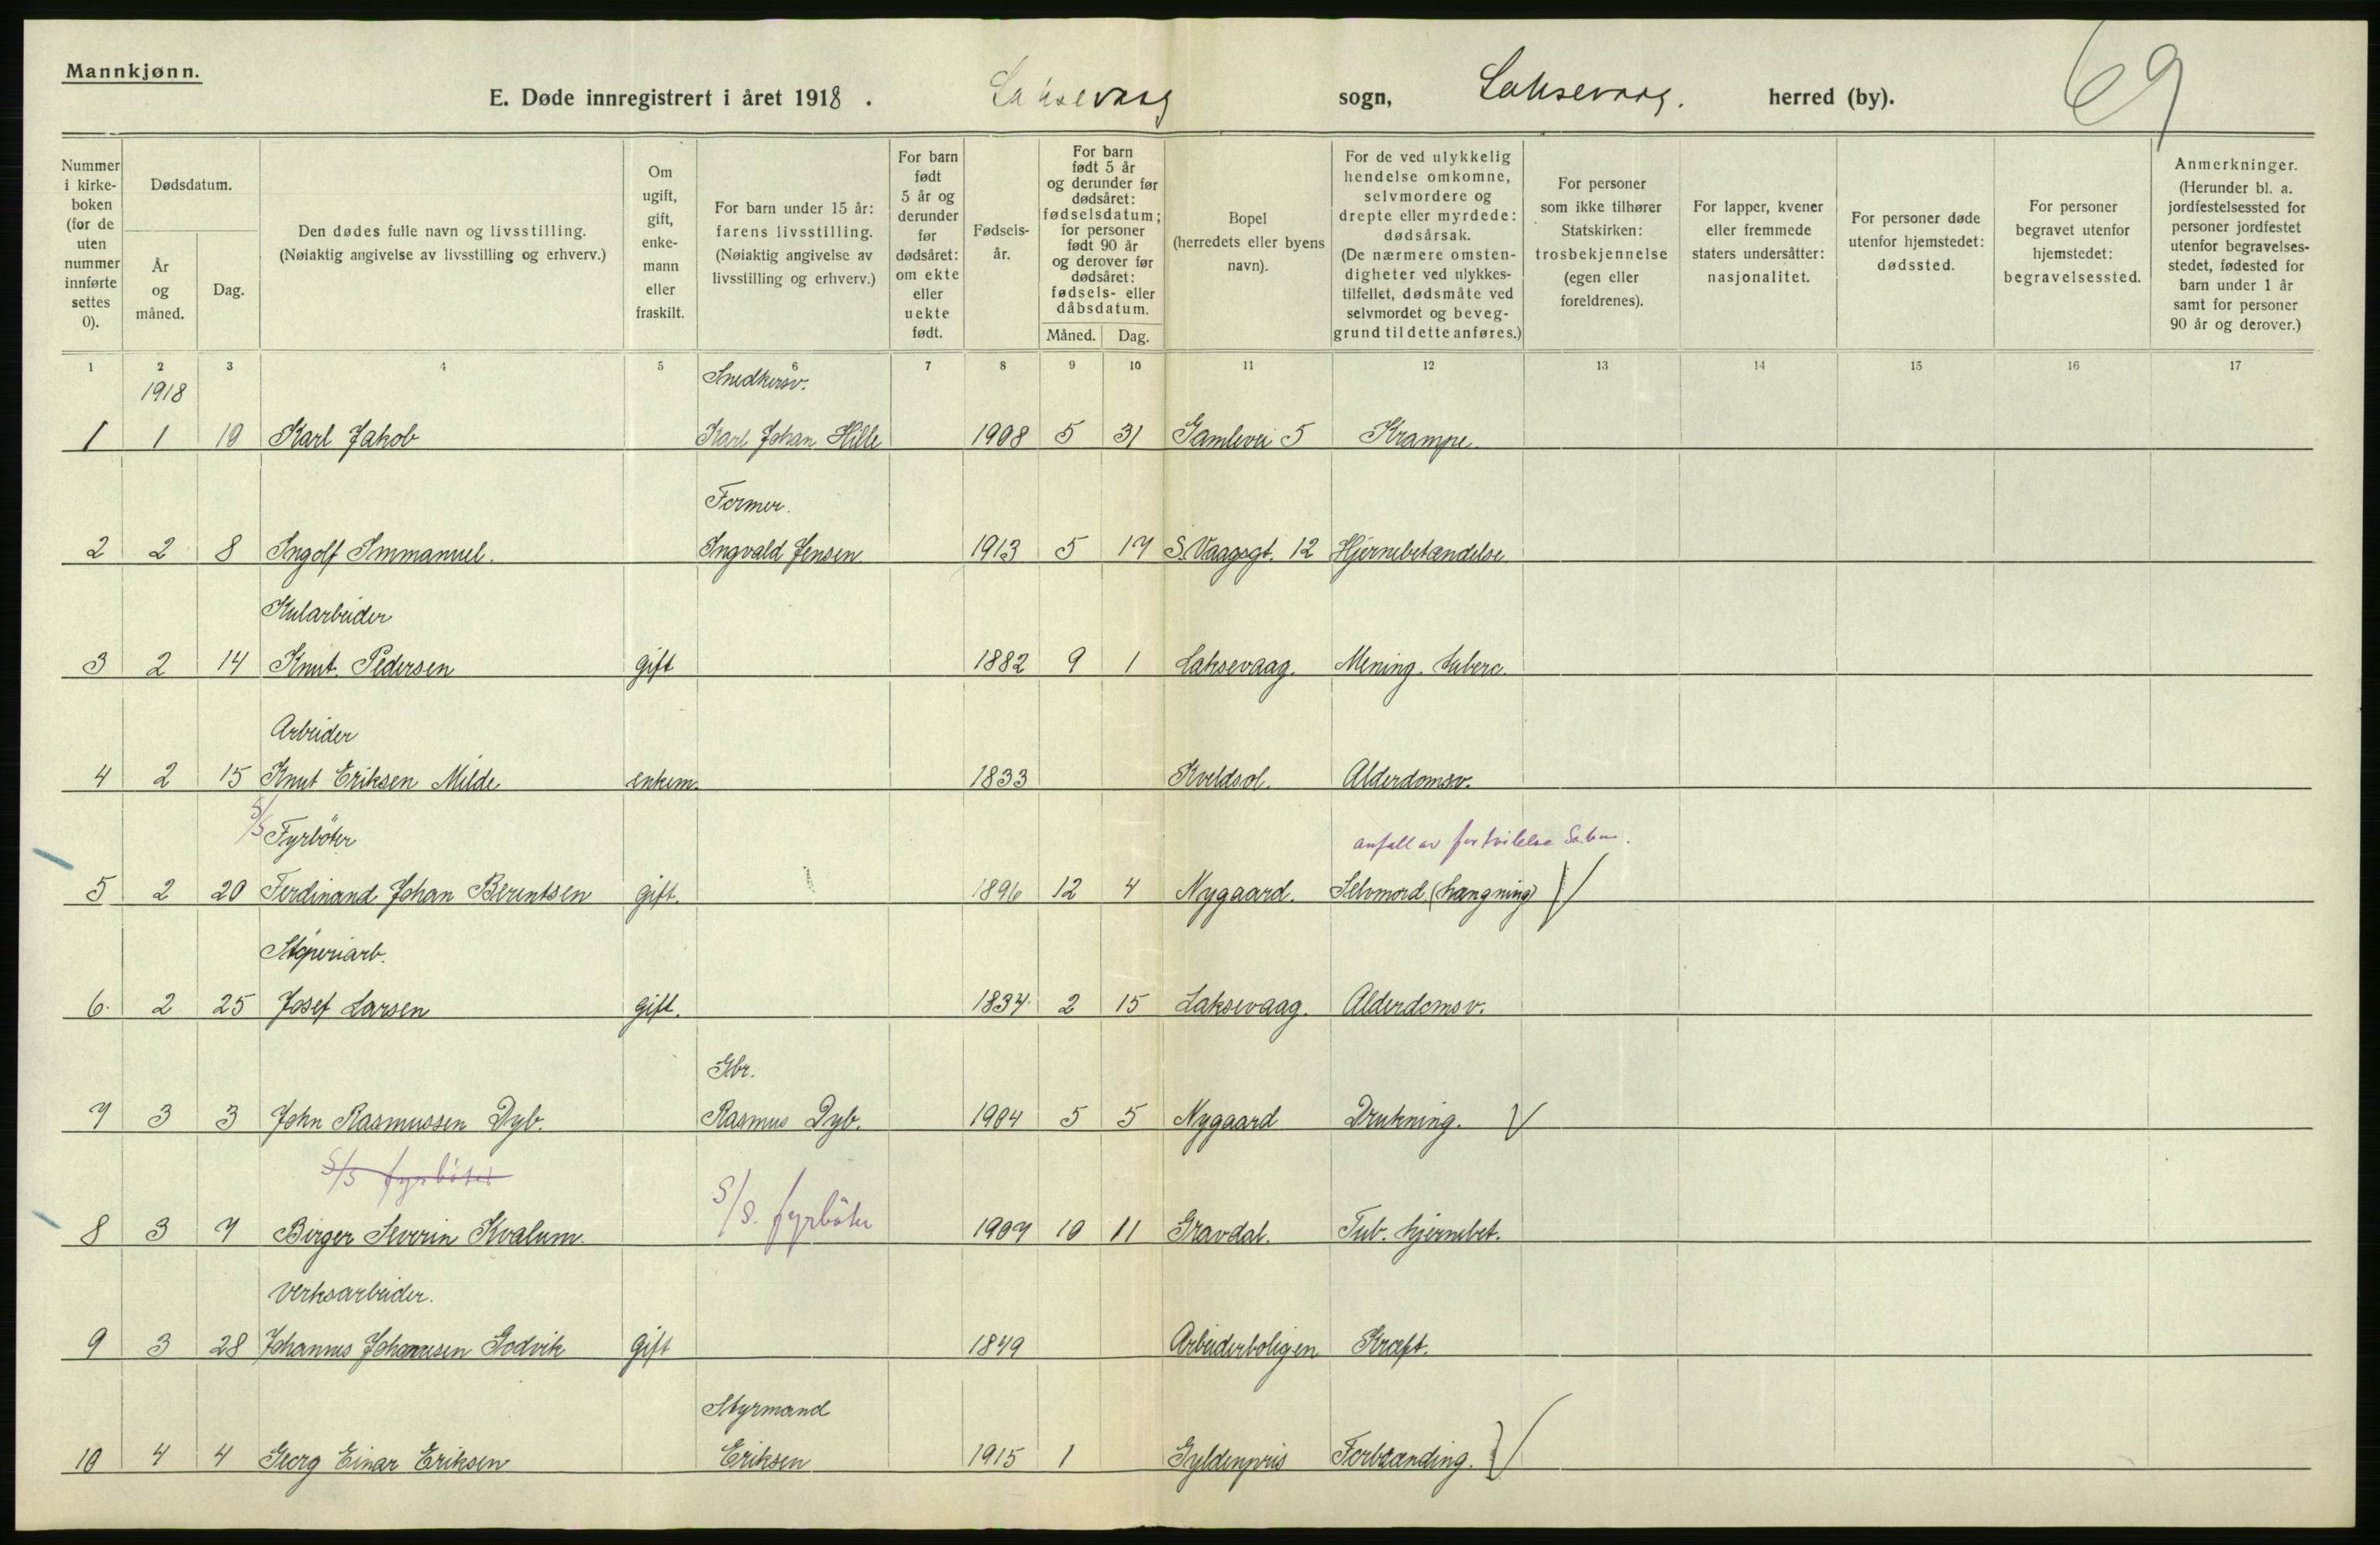 Mannkjønn.
E. Døde innregistrert i året 1918. Laksevaag sogn, Laksevaag. herred (by). 69
Nummer i kirkeboken (for de uten nummer innførte settes 0).
Dødsdatum.
År og måned.
Dag.
Den dødes fulle navn og livsstilling.
(Nøiaktig angivelse av livsstilling og erhverv.)
Om ugift, gift, enkemann eller fraskilt.
For barn under 15 år: farens livsstilling.
(Nøiaktig angivelse av livsstilling og erhverv.)
For barn født 5 år og derunder før dødsåret: om ekte eller uekte født.
Fødselsår.
For barn født 5 år og derunder før dødsåret: fødselsdatum; for personer født 90 år og derover før dødsåret: fødsels- eller dåbsdatum.
Måned. Dag.
Bopel (herredets eller byens navn).
For de ved ulykkelig hendelse omkomne, selvmordere og drepte eller myrdede: dødsårsak.
(De nærmere omstendigheter ved ulykkestilfellet, dødsmåte ved selvmordet og beveggrund til dette anføres.)
For personer som ikke tilhører Statskirken: trosbekjennelse (egen eller foreldrenes).
For lapper, kvener eller fremmede staters undersåtter: nasjonalitet.
For personer døde utenfor hjemstedet: dødssted.
For personer begravet utenfor hjemstedet: begravelsessted.
Anmerkninger.
(Herunder bl. a. jordfestelsessted for personer jordfestet utenfor begravelsesstedet, fødested for barn under 1 år samt for personer 90 år og derover.)
1 2 3 4 5 6 7 8 9 10 11 12 13 14 15 16 17
1918 Snedkersv.
1 1 19 Karl Jakob Karl Johan Hille 1908 5 31 Gamlevei 5 Krampe.
Former.
2 2 8 Ingolf Immanuel. Ingvald Jensen 1913 5 17 S. Vaagsgt. 12 Hjernebetændelse
Kularbeider
3 2 14 Knut Pedersen gift 1882 9 1 Laksevaag. Mening. tuberc.
Arbeider
4 2 15 Knut Eriksen Milde enkem. 1833 Kveldsol. Alderdomsv.
S/S Fyrböter anfall av fortvilelse
5 2 20 Ferdinand Johan Berentsen gift. 1896 12 4 Nygaard. Selvmord (hængning)
Støperiarb.
6. 2 25 Josef Larsen gift. 1834 2 15 Laksevaag. Alderdomsv.
Gbr.
7 3 3 John Rasmussen Dyb. Rasmus Dyb. 1904 5 5 Nygaard Drukning.
S/S fyrböter S/S. fyrböter
8 3 7 Birger Severin Kvalum. 1907 10 11 Gravdal. Tub. hjernebet.
Verksarbeider.
9 3 28 Johannes Johannesen Godvik gift 1849 Arbeiderboligen Kræft.
Styrmand
10 4 4 Georg Einar Eriksen Eriksen 1915 1 Gyldenpris Forbrænding.